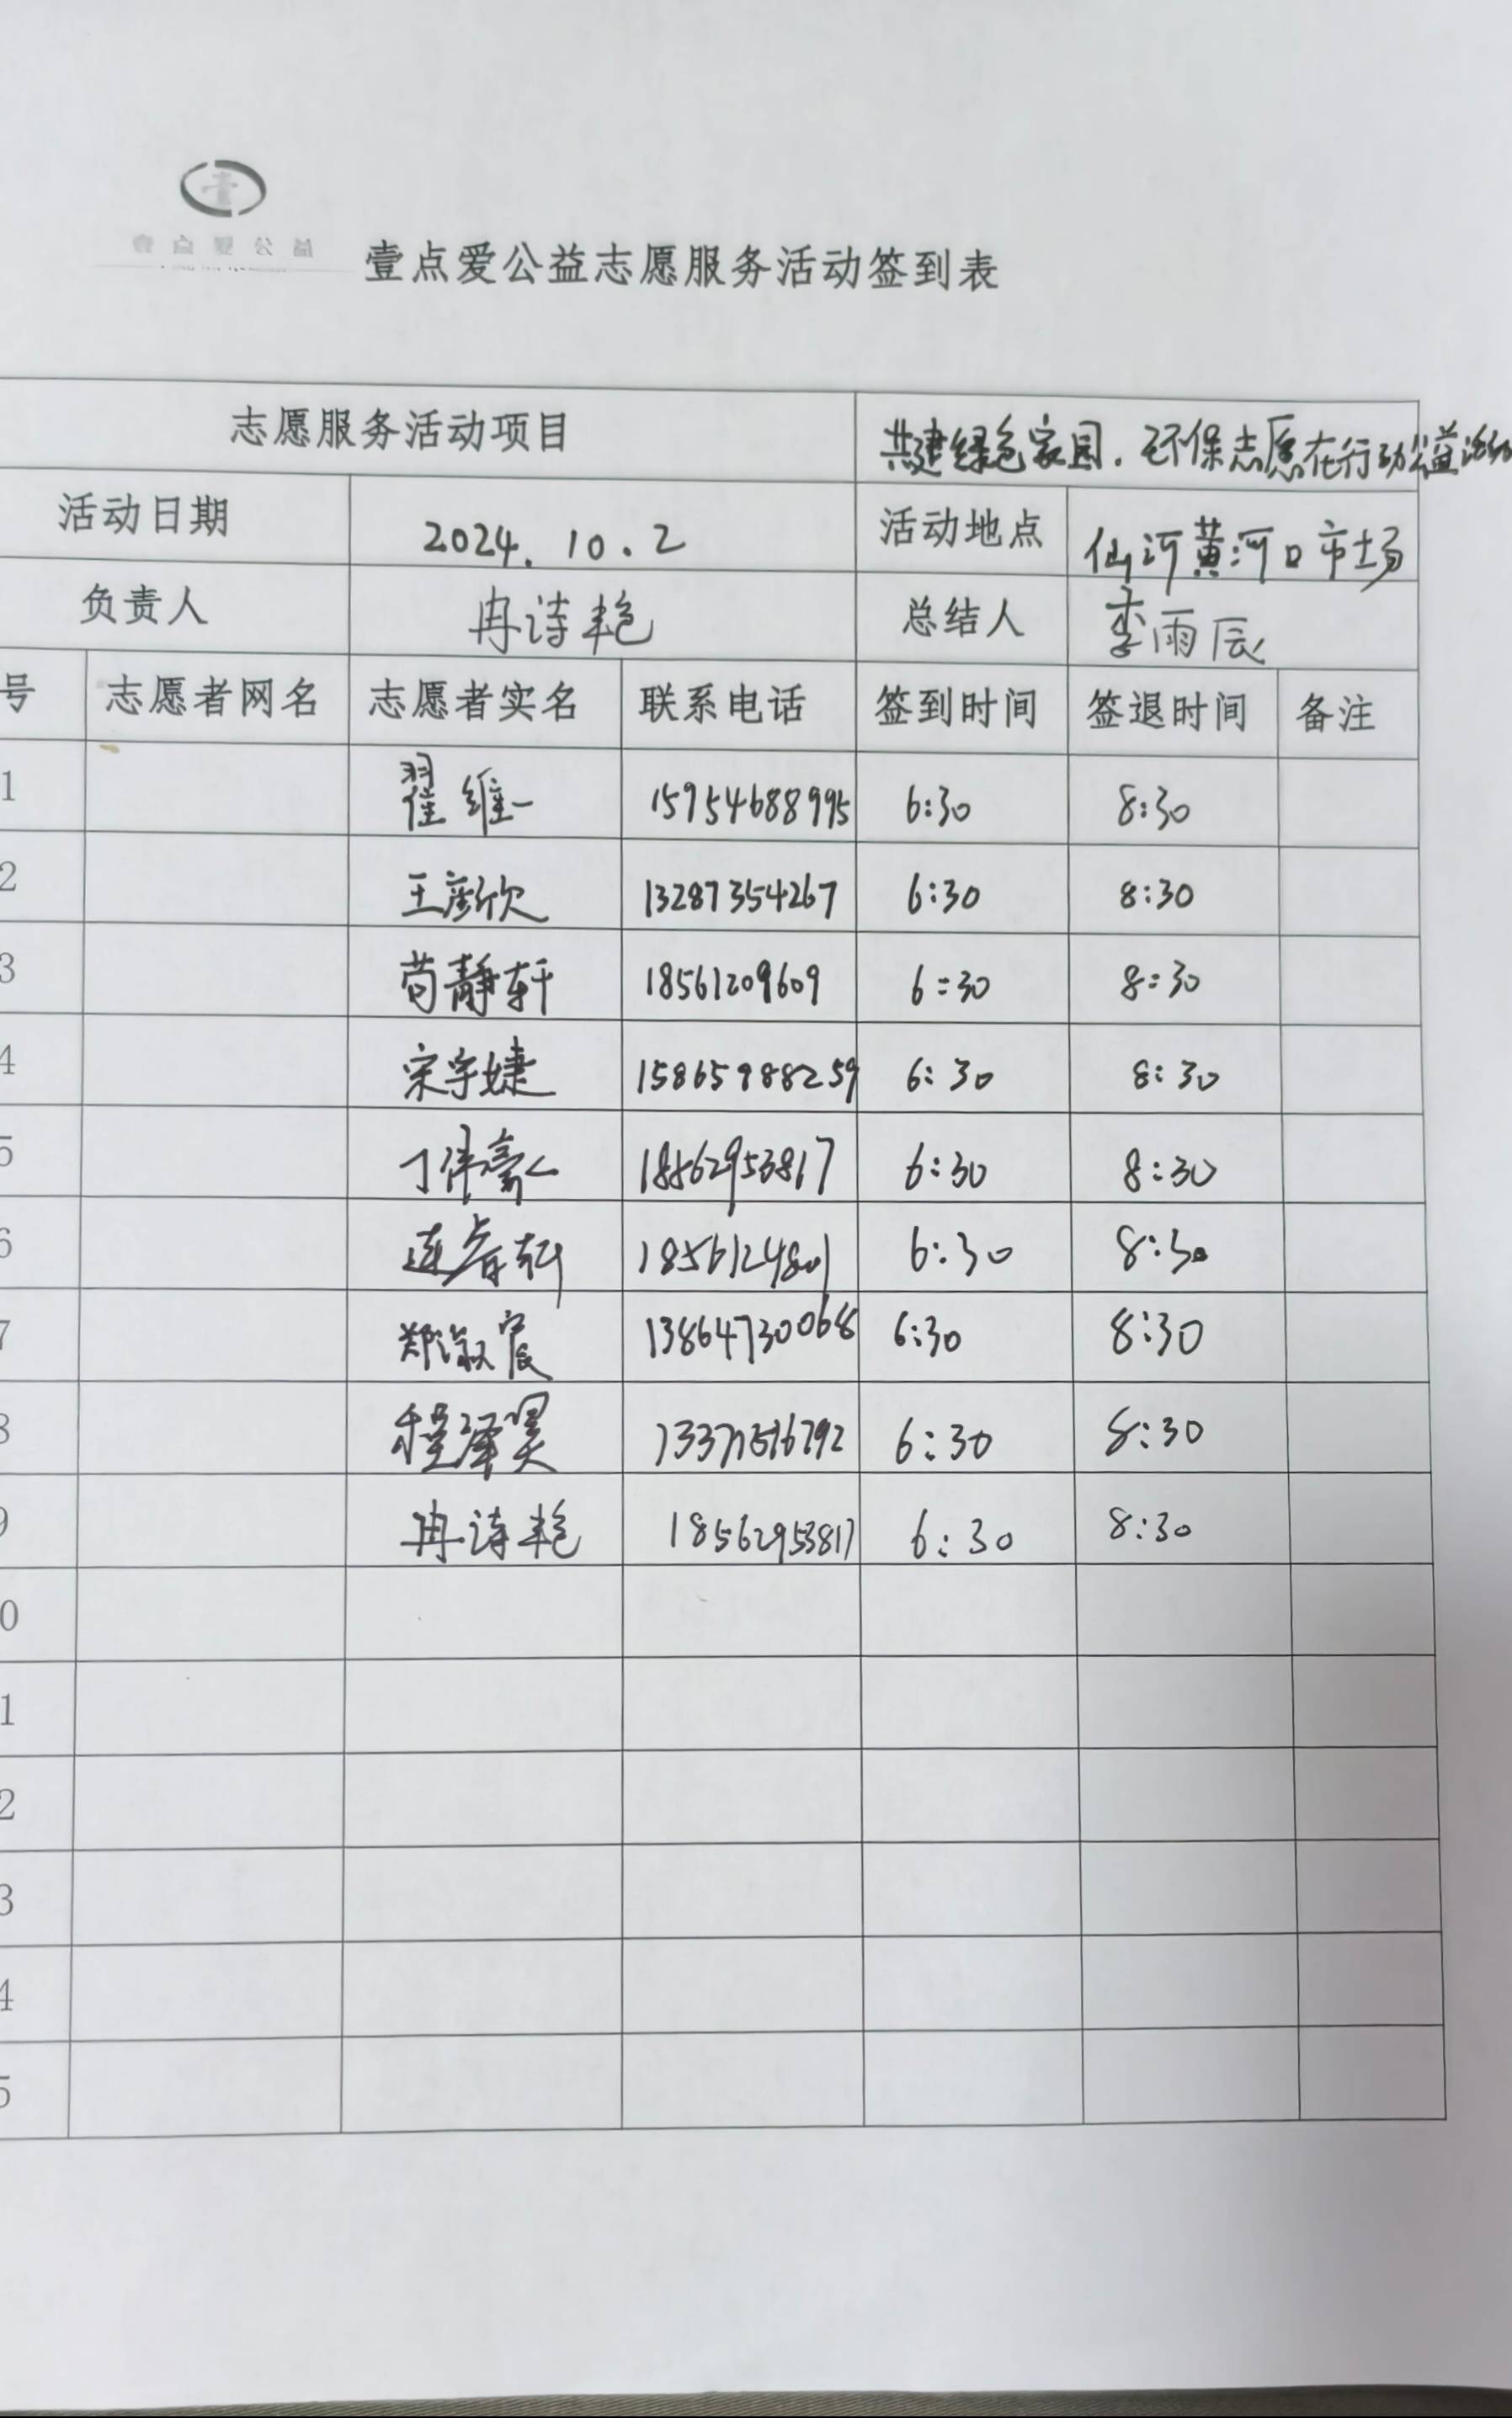 壹点爱公益
壹点爱公益志愿服务活动签到表
志愿服务活动项目 共建绿色家园.环保志愿在行动公益活动
活动日期 2024.10.2 活动地点 仙河黄河口市场
负责人 冉诗艳 总结人 李雨辰
号 志愿者网名 志愿者实名 联系电话 签到时间 签退时间 备注
1 翟维一 15954688995 6:30 8:30
2 王彦欣 13287354267 6:30 8:30
3 苟静轩 18561209609 6:30 8:30
4 宋宇婕 15865988259 6:30 8:30
5 丁伟豪 18562953817 6:30 8:30
6 连春轩 1856124801 6:30 8:30
7 郑淑宸 13864730068 6:30 8:30
8 程泽昊 6:30 8:30
9 冉诗艳 18562953817 6:30 8:30
0
1
2
3
4
5